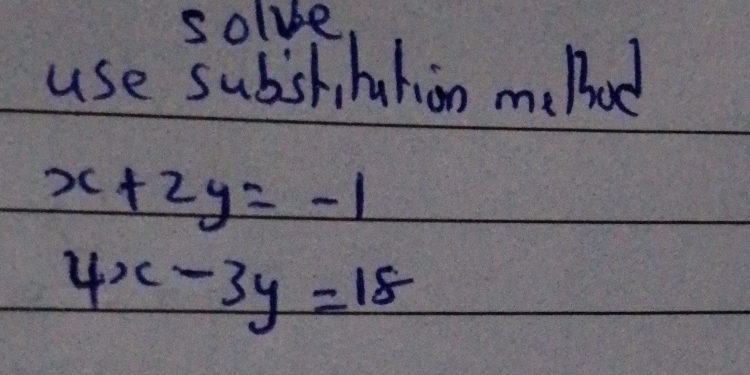 solve
use substitution method
x + 2y = -1
4x - 3y = 18